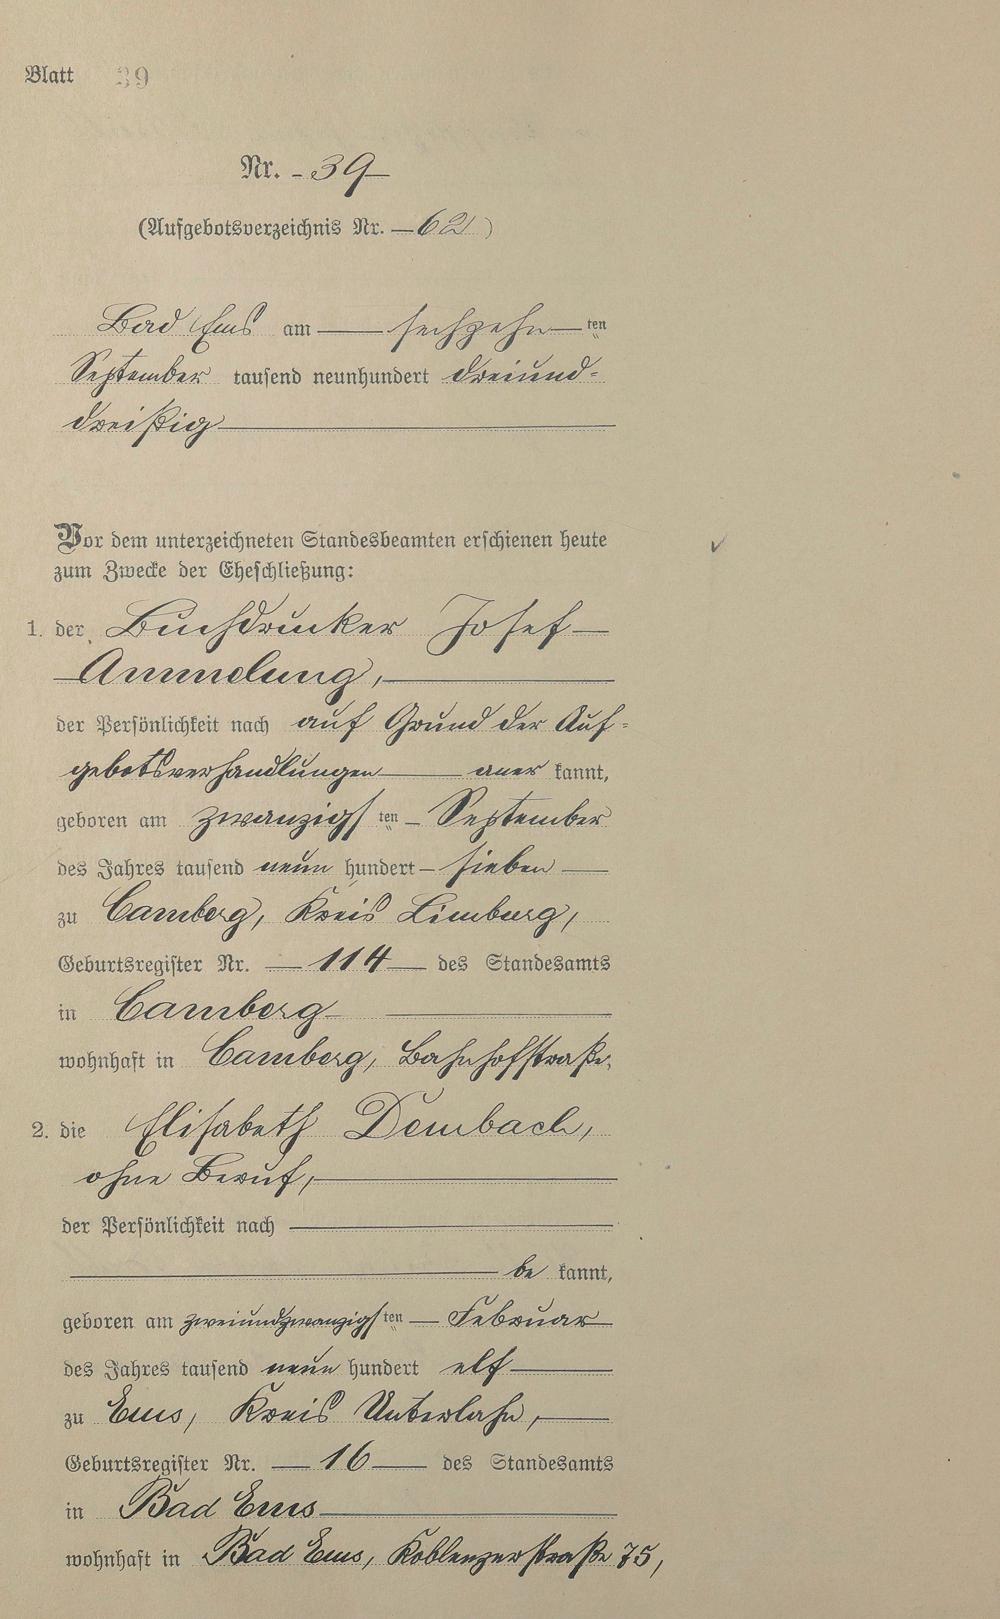 Blatt 39
Nr. - 39 -
(Aufgebotsverzeichnis Nr. - 62)
Bad Ems am — sechzehn — ten
September tausend neunhundert dreiund-
dreißig
Vor dem unterzeichneten Standesbeamten erschienen heute
zum Zwecke der Eheschließung:
1. der Buchdrucker Josef
Ammelung,
der Persönlichkeit nach auf Grund der Auf-
gebotsverhandlungen — aner kannt,
geboren am zwanzigsten — September
des Jahres tausend neun hundert — sieben —
zu Camberg, Kreis Limburg,
Geburtsregister Nr. — 114 — des Standesamts
in Camberg
wohnhaft in Camberg, Bahnhofstraße.
2. die Elisabeth Dembach,
ohne Beruf,
der Persönlichkeit nach
be kannt,
geboren am zweiundzwanzigsten — Februar
des Jahres tausend neun hundert elf
zu Ems, Kreis Unterlahn,
Geburtsregister Nr. — 16 — des Standesamts
in Bad Ems
wohnhaft in Bad Ems, Koblenzerstraße 75,